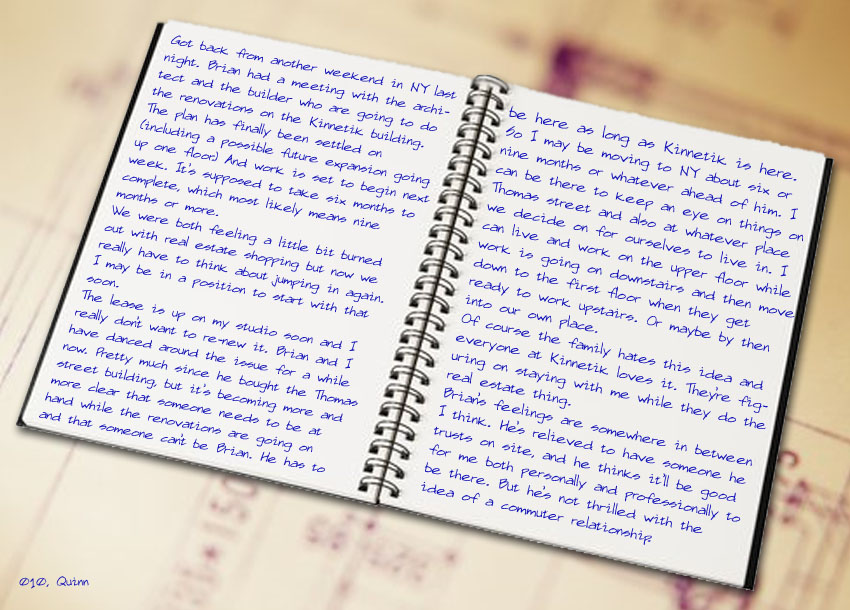 Got back from another weekend in NY last
night. Brian had a meeting with the archi-
tect and the builder who are going to do
the renovations on the Kinnetik building.
The plan has finally been settled on
(including a possible future expansion going
up one floor.) And work is set to begin next
week. It's supposed to take six months to
complete, which most likely means nine
months or more.
We were both feeling a little bit burned
out with real estate shopping but now we
really have to think about jumping in again.
I may be in a position to start with that
soon.
The lease is up on my studio soon and I
really don't want to re-new it. Brian and I
have danced around the issue for a while
now. Pretty much since he bought the Thomas
street building, but it's becoming more and
more clear that someone needs to be at
hand while the renovations are going on
and that someone can't be Brian. He has to
be here as long as Kinnetik is here.
So I may be moving to NY about six or
nine months or whatever ahead of him. I
can be there to keep an eye on things on
Thomas street and also at whatever place
we decide on for ourselves to live in. I
can live and work on the upper floor while
work is going on downstairs and then move
down to the first floor when they get
ready to work upstairs. Or maybe by then
into our own place.
Of course the family hates this idea and
everyone at Kinnetik loves it. They're fig-
uring on staying with me while they do the
real estate thing.
Brian's feelings are somewhere in between
I think. He's relieved to have someone he
trusts on site, and he thinks it'll be good
for me both personally and professionally to
be there. But he's not thrilled with the
idea of a commuter relationship.
010, Quinn